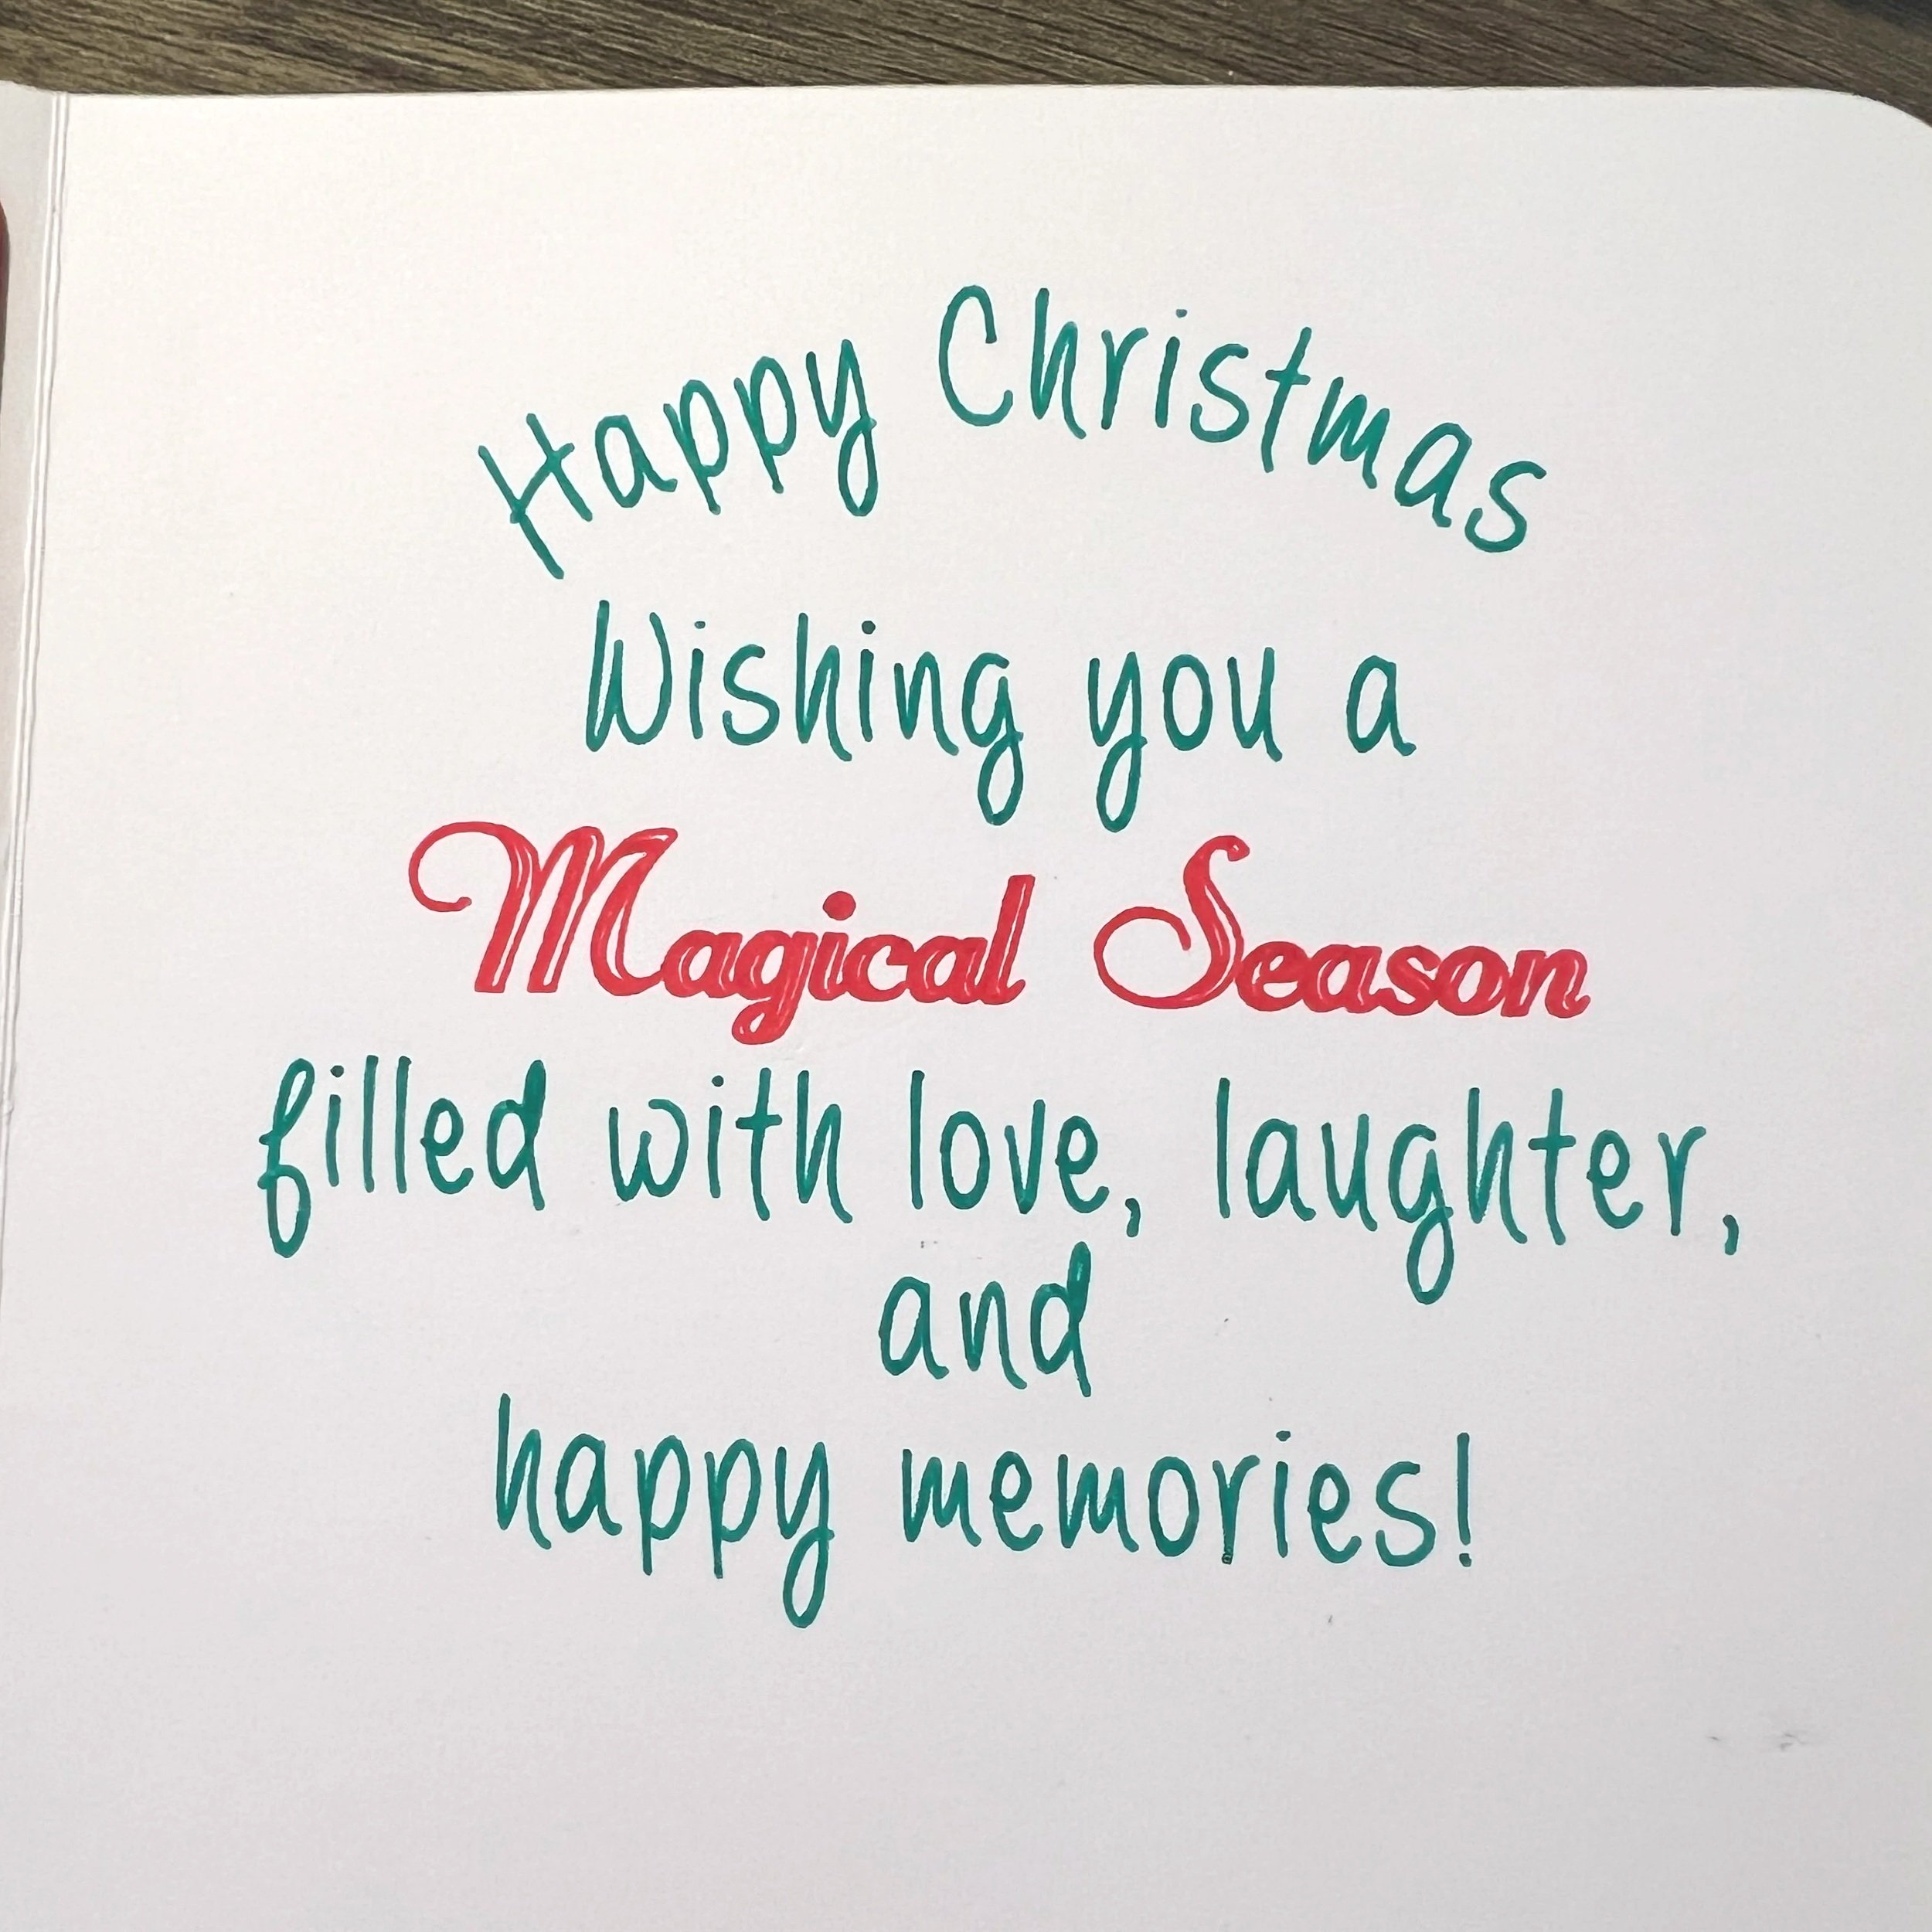 Happy Christmas
Wishing you a
Magical Season
filled with love, laughter,
and
happy memories!